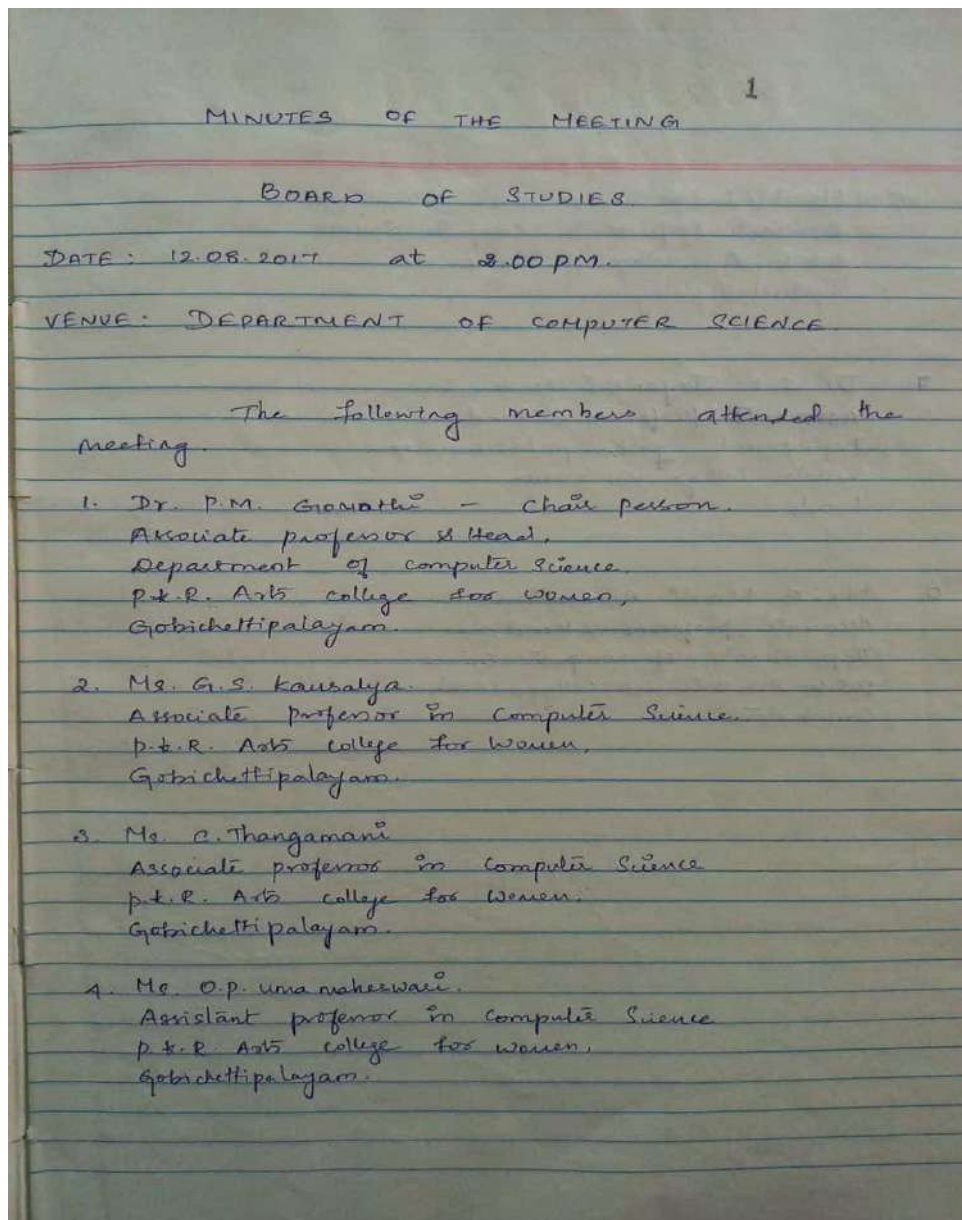 1
MINUTES OF THE MEETING
BOARD OF STUDIES.
DATE: 12.08.2017 at 2.00 PM.
VENUE: DEPARTMENT OF COMPUTER SCIENCE.
The following members attended the
meeting.
1. Dr. P.M. Gomathi - Chair person.
Associate professor & Head,
Department of computer Science.
P.K.R. Arts college for women,
Gobichettipalayam.
2. Ms. G.S. Kausalya.
Associate professor in Computer Science.
P.K.R. Arts college for women,
Gobichettipalayam.
3. Ms. C. Thangamani
Associate professor in Computer Science
P.K.R. Arts college for women.
Gobichettipalayam.
4. Ms. O.P. Uma maheswari.
Assistant professor in Computer Science
P.K.R. Arts college for women,
Gobichettipalayam.